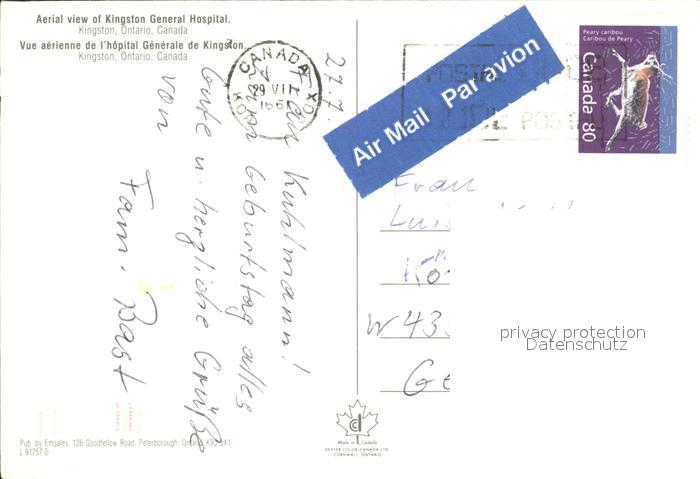 Aerial view of Kingston General Hospital.
Kingston, Ontario, Canada
Vue aérienne de l'hôpital Générale de Kingston.
Kingston, Ontario, Canada
CANADA
29 VII
Air Mail Par avion
Peary caribou
Caribou de Peary
Canada 80
27.7.
Frau Kuhlmann!
Zum Geburtstag alles
Gute u. herzliche Grüße
von
Fam. Bast
Frau
W 43
Ge
privacy protection
Datenschutz
Made in Canada
DEXTER COLOR CANADA LTD.
CORNWALL, ONTARIO
Pub. by Emsales, 126 Goodfellow Road, Peterborough, Ontario,
L 91757 D